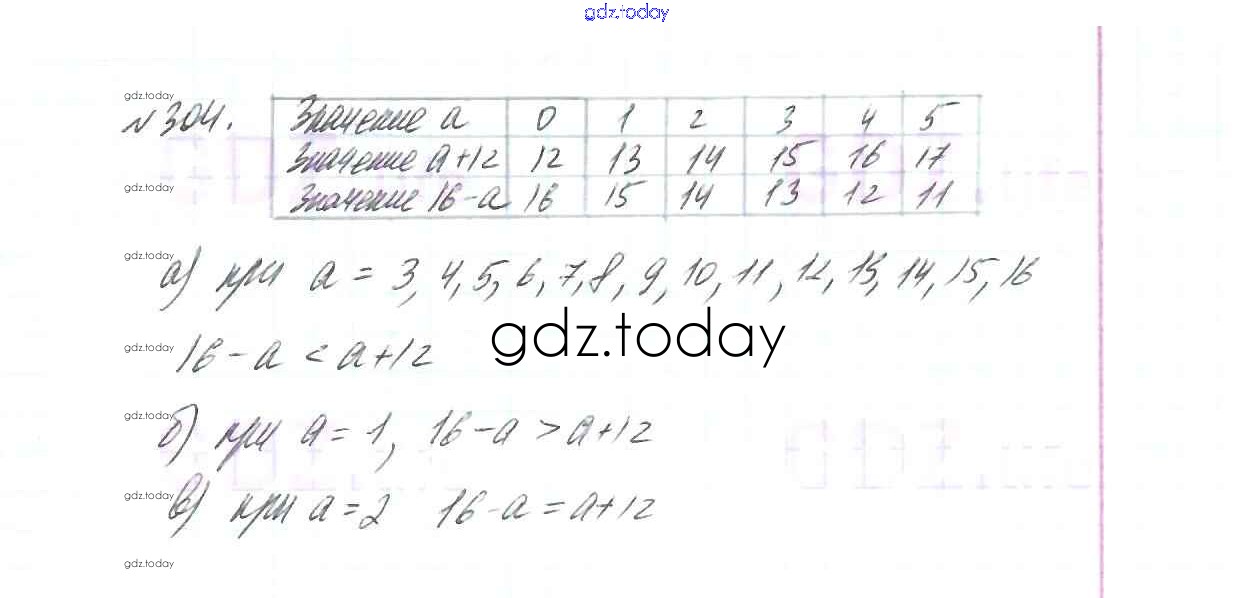 gdz.today
gdz.today
№304. Значение a 0 1 2 3 4 5
Значение a+12 12 13 14 15 16 17
gdz.today
Значение 16-a 16 15 14 13 12 11
gdz.today
а) при a = 3, 4, 5, 6, 7, 8, 9, 10, 11, 12, 13, 14, 15, 16
gdz.today
gdz.today
16-a < a+12
gdz.today
б) при a = 1, 16-a > a+12
gdz.today
в) при a = 2 16-a = a+12
gdz.today